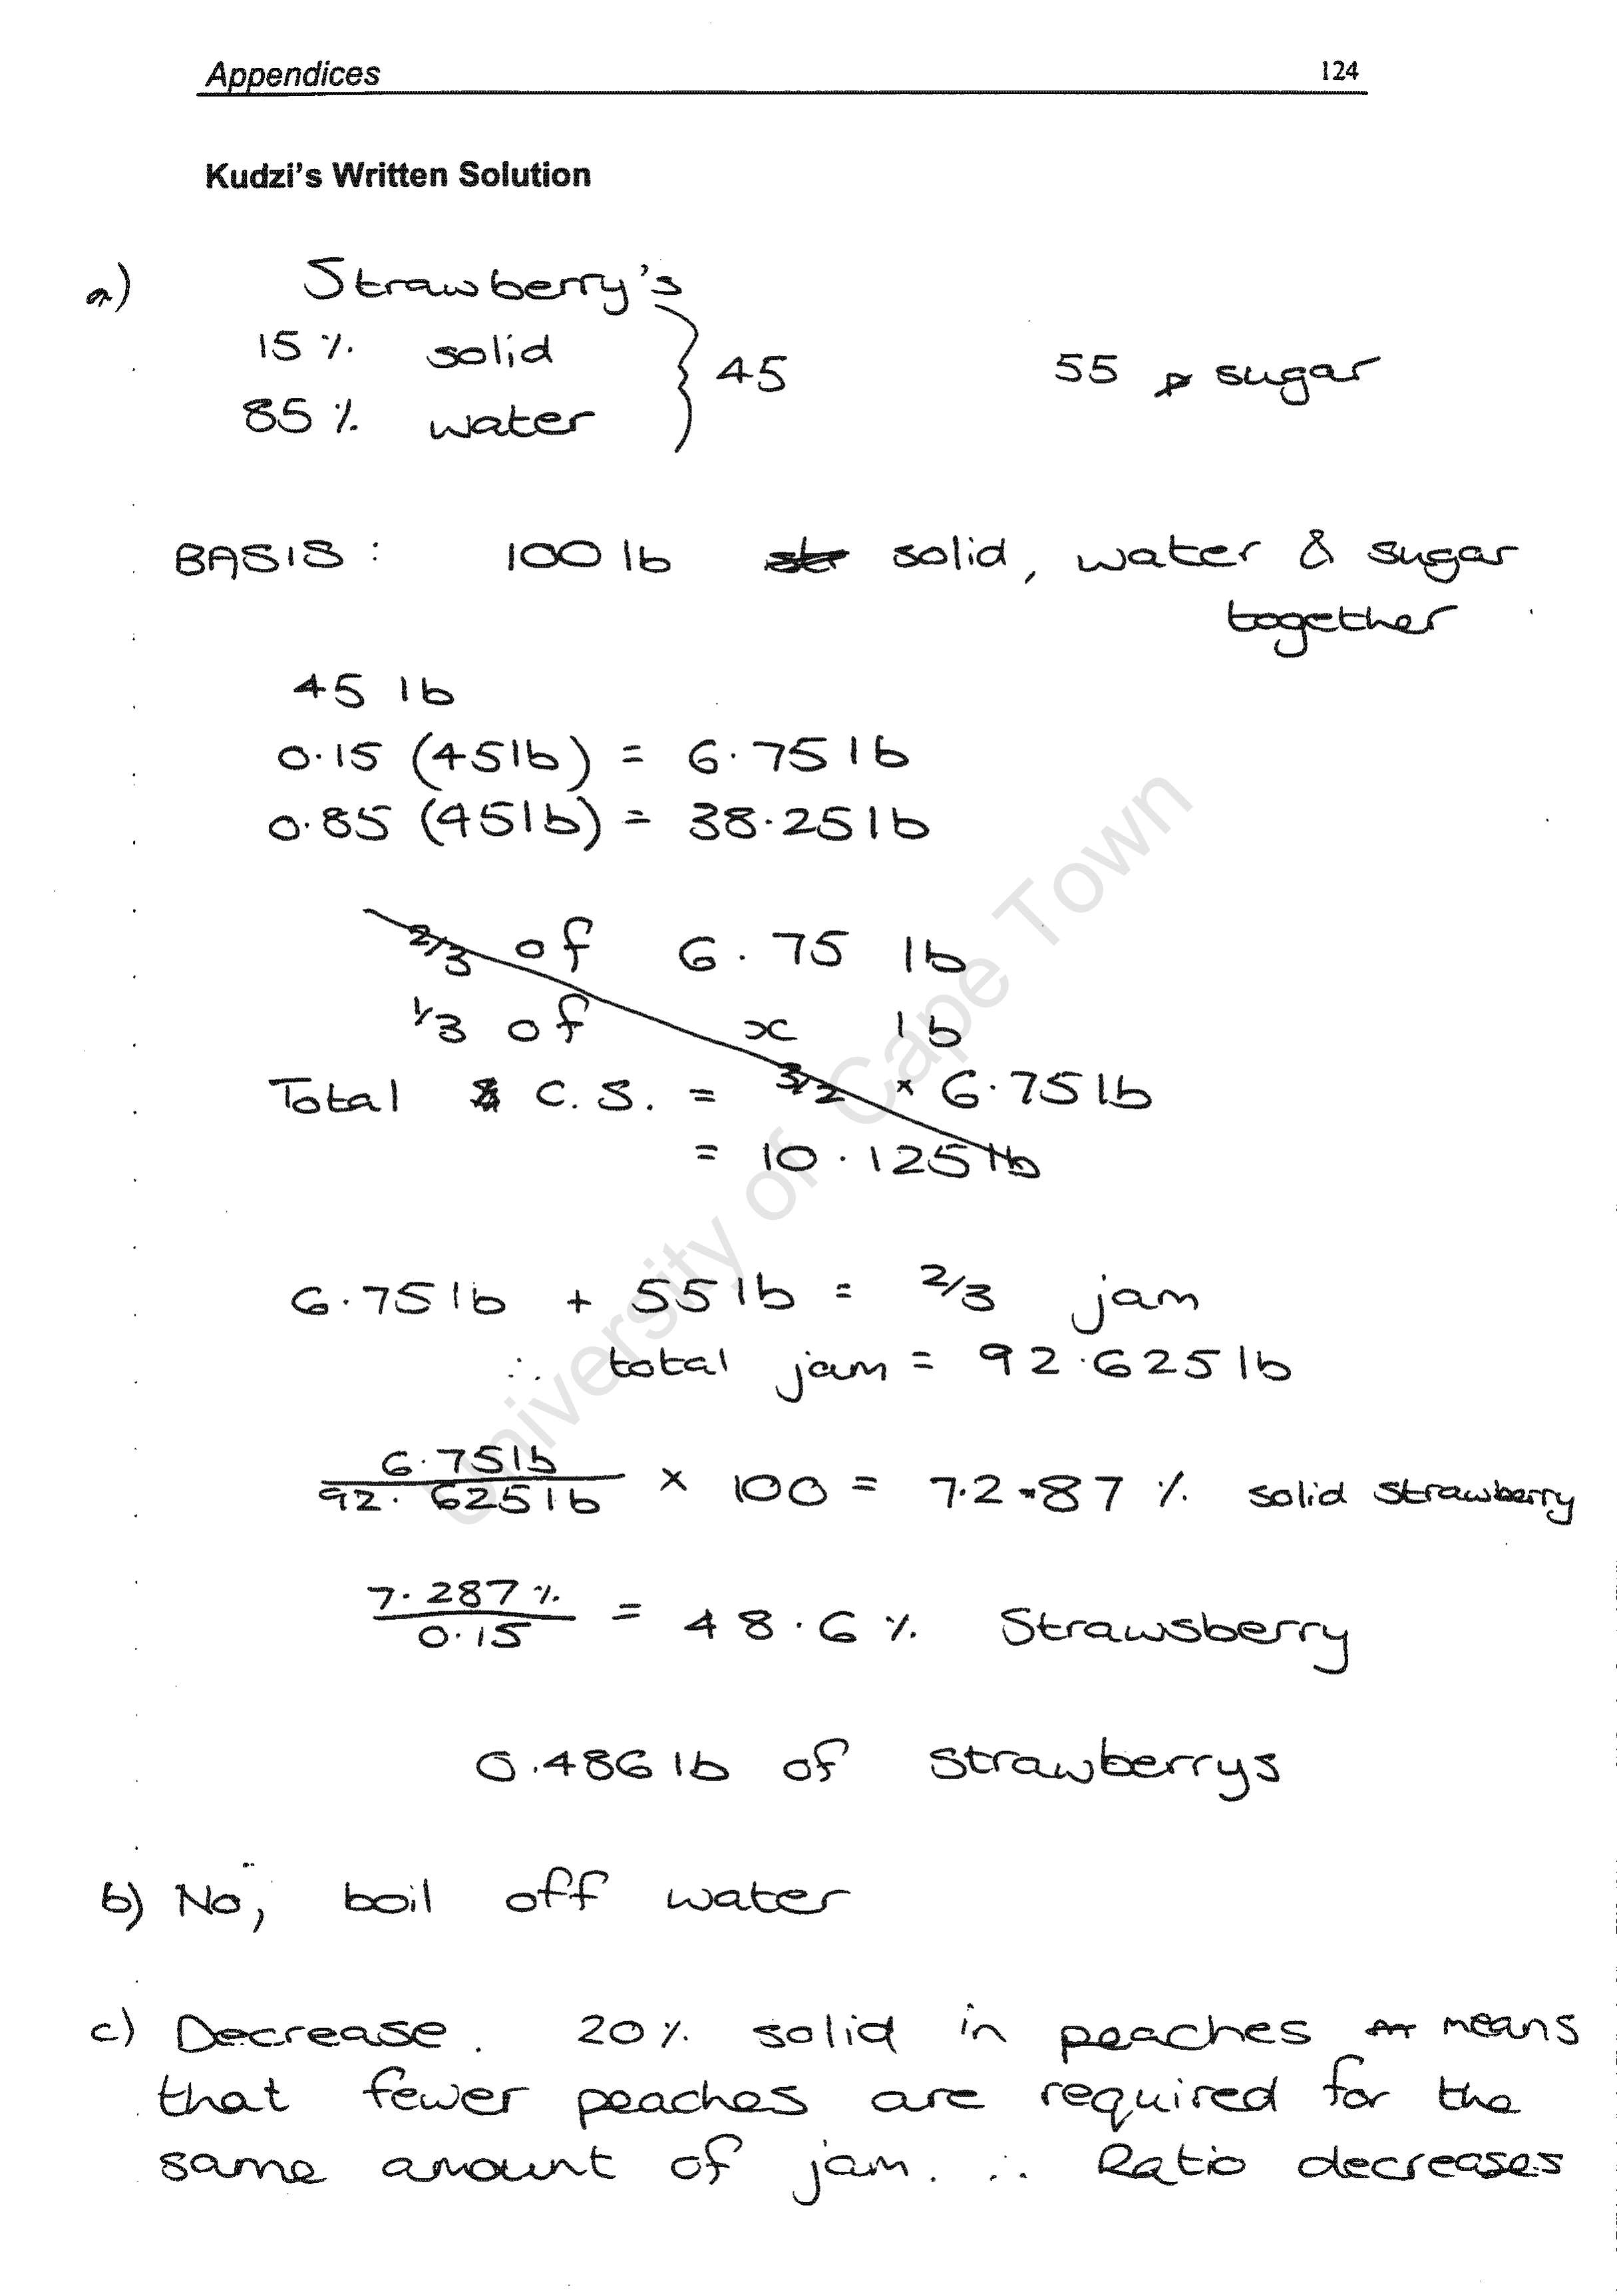 Appendices 124
Kudzi's Written Solution
a) Strawberry's
15 % solid
45 55 sugar
85 % water
BASIS : 100 lb solid, water & sugar
together
45 lb
0.15 (45lb) = 6.75 lb
0.85 (45lb) = 38.25 lb
2/3 of 6.75 lb
1/3 of x lb
Total C.S. = 3/2 × 6.75 lb
= 10.125 lb
6.75 lb + 55 lb = 2/3 jam
∴ total jam = 92.625 lb
6.75lb
92.625lb × 100 = 7.287 % solid strawberry
7.287 %
0.15 = 48.6 % Strawsberry
0.486 lb of strawberrys
b) No, boil off water
c) Decrease. 20 % solid in peaches means
that fewer peaches are required for the
same amount of jam. ∴ Ratio decreases
University of Cape Town